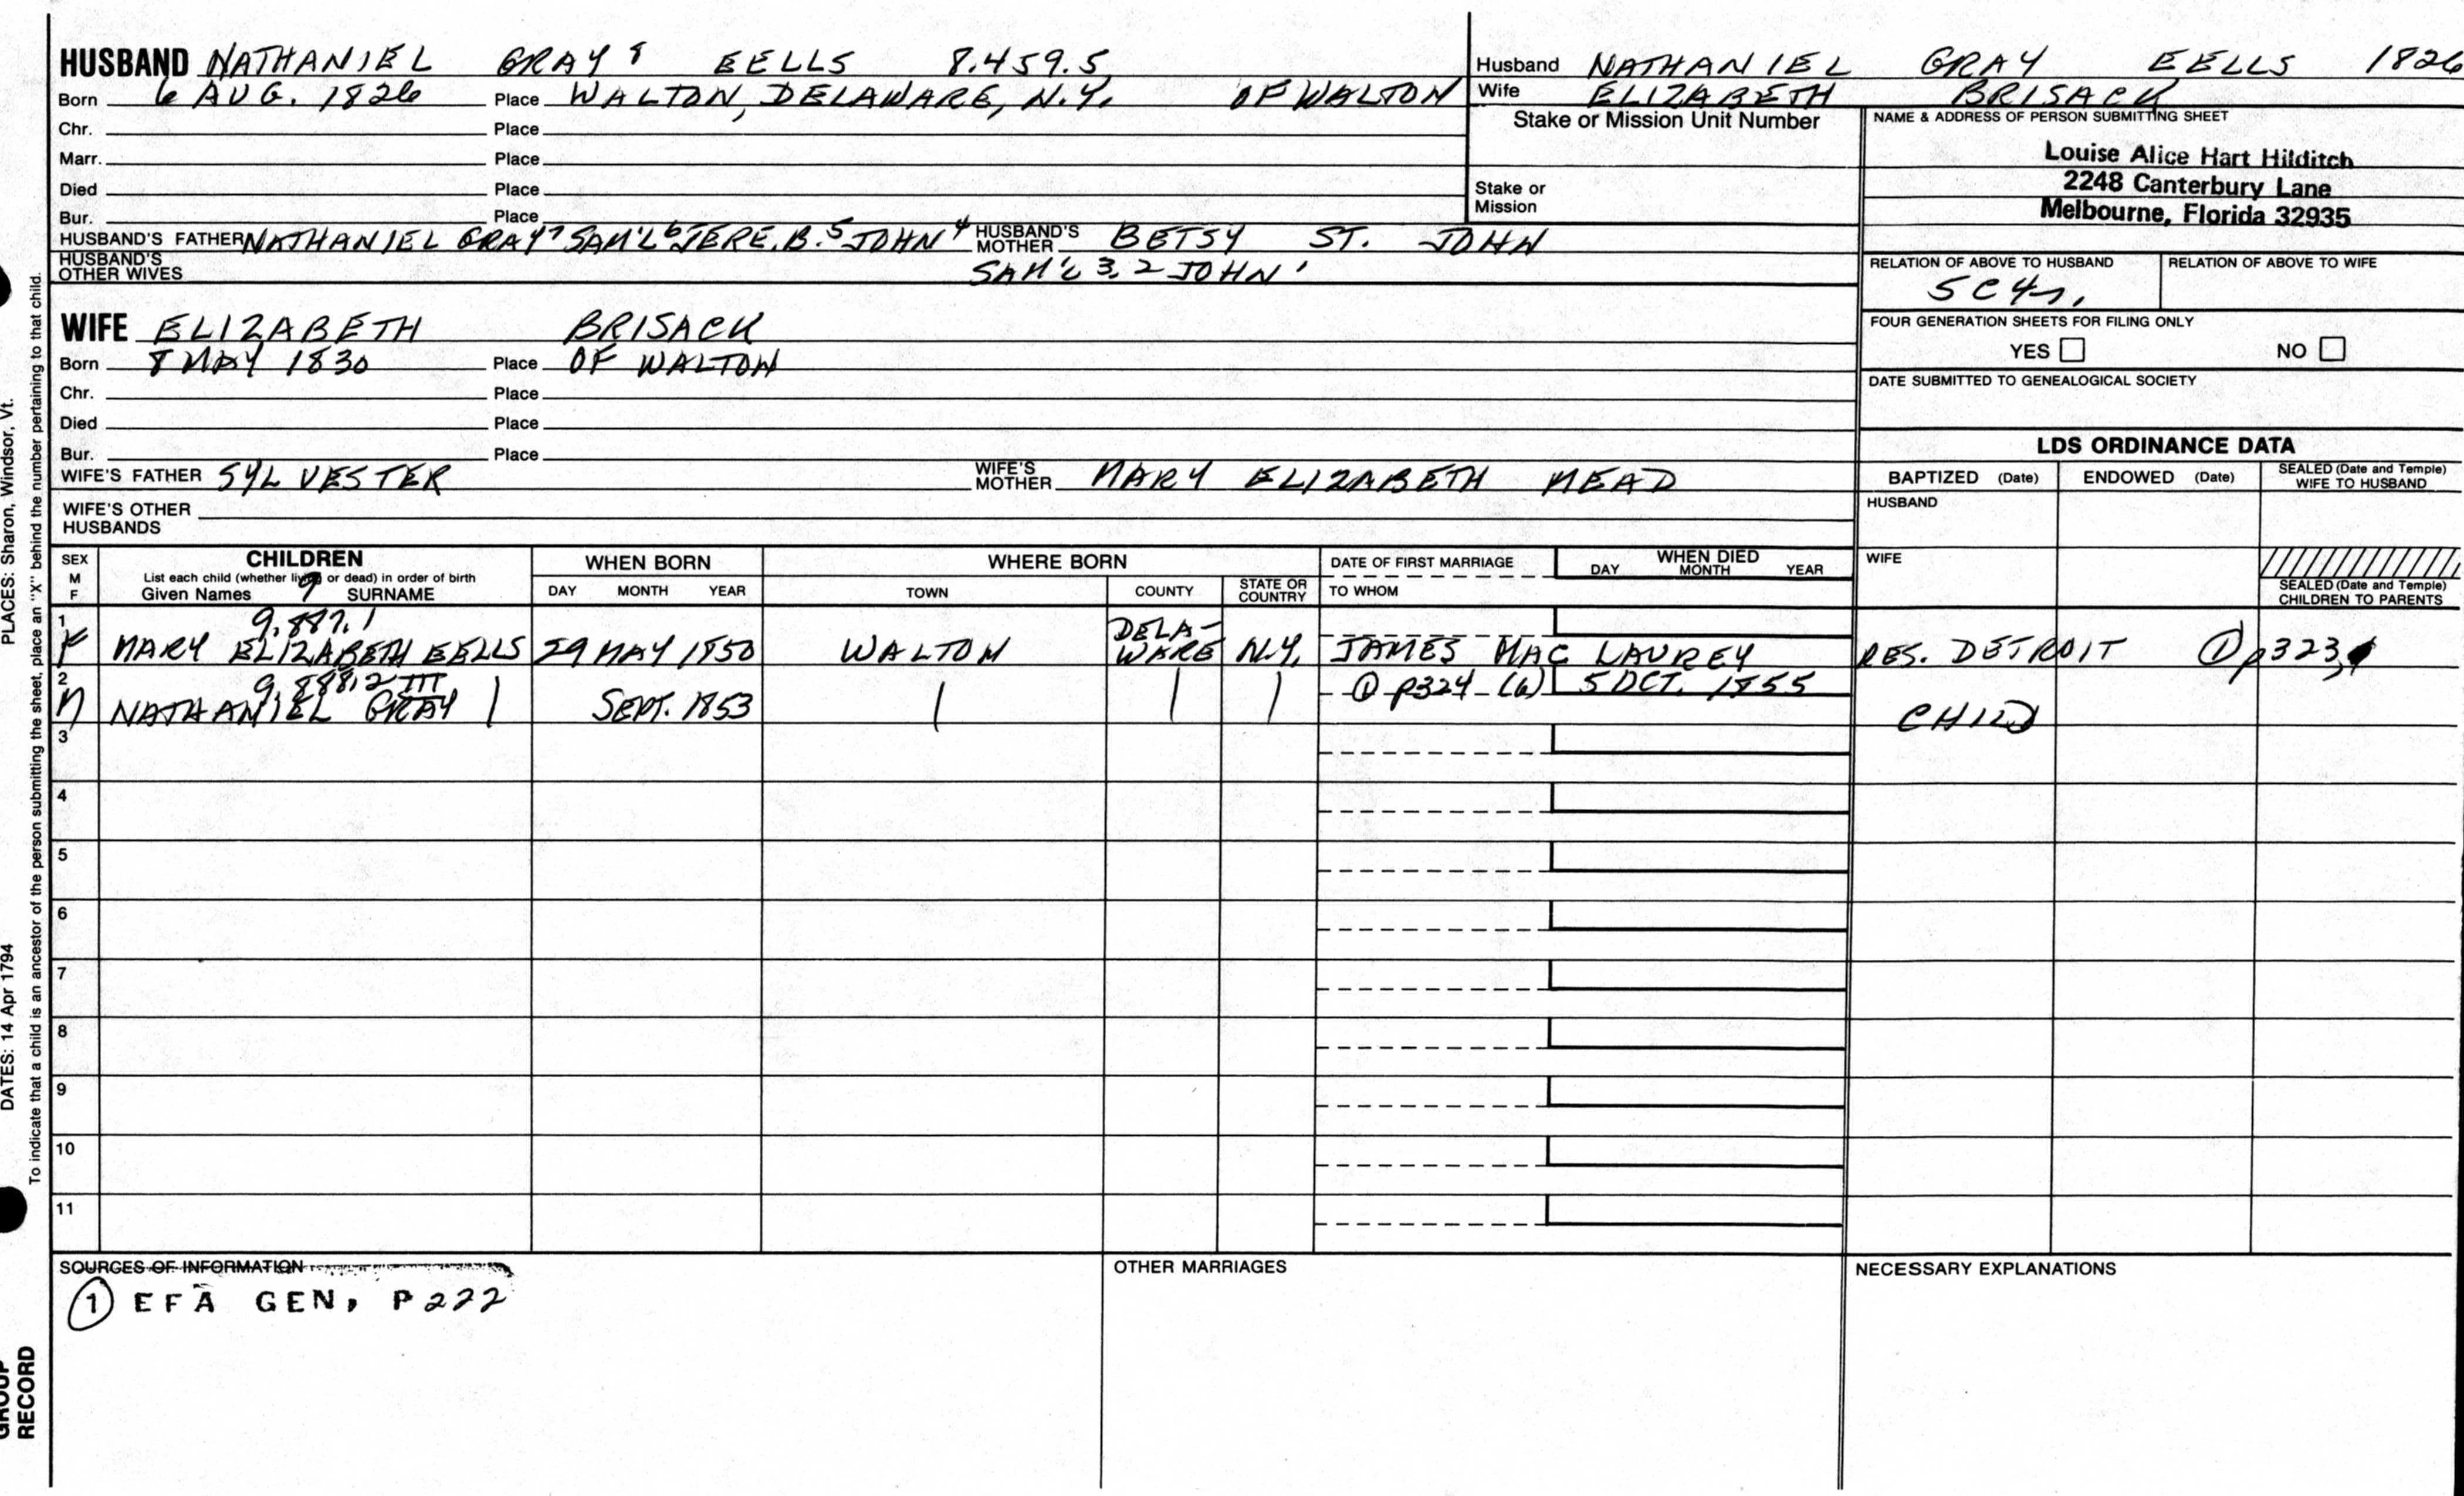 HUSBAND NATHANIEL GRAY⁸ EELLS 8.459.5
Born 6 AUG. 1826 Place WALTON, DELAWARE, N.Y. OF WALTON
Chr. Place
Marr. Place
Died Place
Bur. Place
HUSBAND'S FATHER NATHANIEL GRAY⁷ SAM'L⁶ JERE. B.⁵ JOHN⁴ HUSBAND'S MOTHER BETSY ST. JOHN
HUSBAND'S OTHER WIVES SAM'L 3, 2 JOHN'
Husband NATHANIEL GRAY EELLS 1826
Wife ELIZABETH BRISACK
Stake or Mission Unit Number
Stake or Mission
NAME & ADDRESS OF PERSON SUBMITTING SHEET
Louise Alice Hart Hilditch
2248 Canterbury Lane
Melbourne, Florida 32935
RELATION OF ABOVE TO HUSBAND RELATION OF ABOVE TO WIFE
FOUR GENERATION SHEETS FOR FILING ONLY
YES NO
DATE SUBMITTED TO GENEALOGICAL SOCIETY
WIFE ELIZABETH BRISACK
Born 8 MAY 1830 Place OF WALTON
Chr. Place
Died Place
Bur. Place
WIFE'S FATHER SYLVESTER WIFE'S MOTHER MARY ELIZABETH MEAD
WIFE'S OTHER HUSBANDS
LDS ORDINANCE DATA
BAPTIZED (Date) ENDOWED (Date) SEALED (Date and Temple) WIFE TO HUSBAND
HUSBAND
WIFE
SEALED (Date and Temple) CHILDREN TO PARENTS
SEX M F CHILDREN WHEN BORN WHERE BORN DATE OF FIRST MARRIAGE WHEN DIED
List each child (whether living or dead) in order of birth
Given Names 9 SURNAME DAY MONTH YEAR TOWN COUNTY STATE OR COUNTRY TO WHOM DAY MONTH YEAR
1 9.887.1
F MARY ELIZABETH EELLS 29 MAY 1850 WALTON DELA-WARE N.Y. JAMES MAC LAUREY RES. DETROIT ① p323,
2 9.888.2 III ① p324 (6) 5 OCT. 1855
M NATHANIEL GRAY | SEPT. 1853 | | | CHILD
3
4
5
6
7
8
9
10
11
SOURCES OF INFORMATION
① EFA GEN, P222
OTHER MARRIAGES
NECESSARY EXPLANATIONS
PLACES: Sharon, Windsor, Vt.
DATES: 14 Apr 1794
To indicate that a child is an ancestor of the person submitting the sheet, place an "X" behind the number pertaining to that child.
GROUP
RECORD